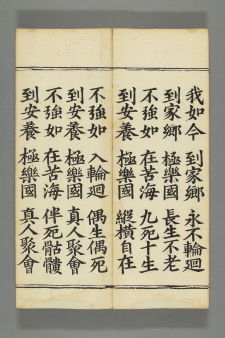 我如今　到家鄉　永不輪廻
到家鄉　極樂國　長生不老
不強如　在苦海　九死十生
到安養　極樂國　縱橫自在
不強如　入輪廻　偶生偶死
到安養　極樂國　真人聚會
不強如　在苦海　伴死骷髏
到安養　極樂國　真人聚會